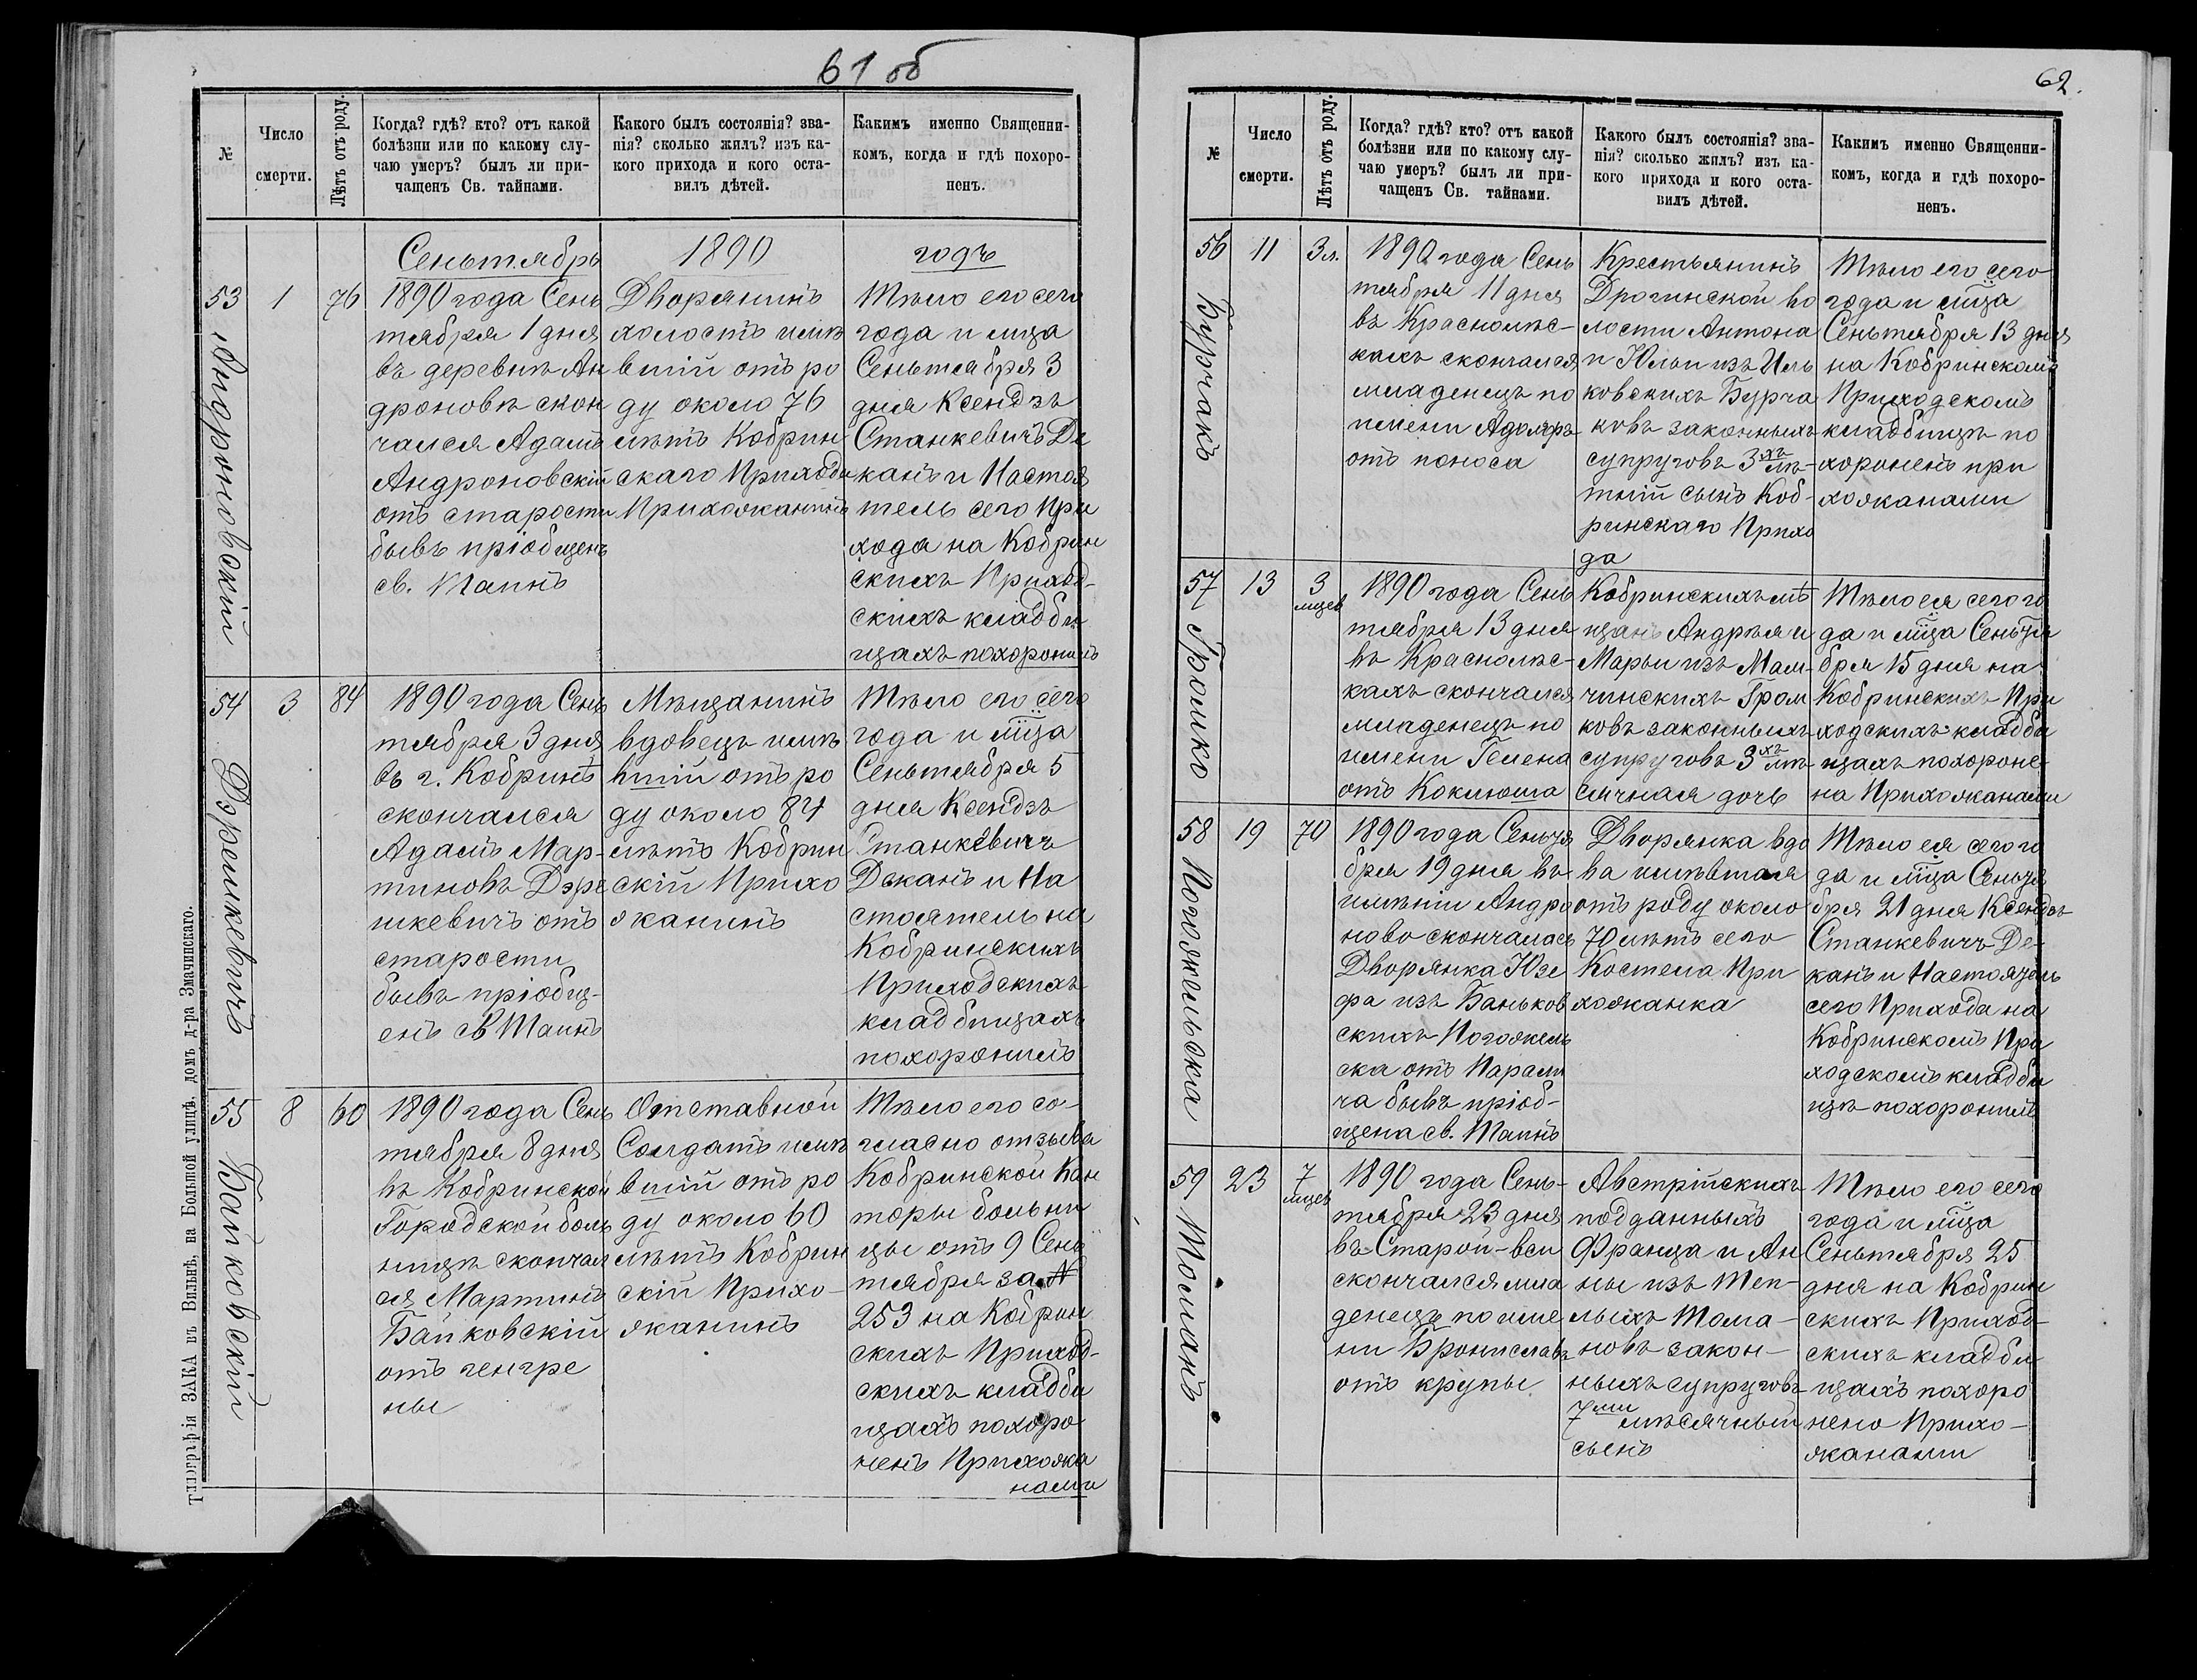 61 об
№
Число
смерти.
Лѣтъ отъ роду.
Когда? гдѣ? кто? отъ какой
болѣзни или по какому слу-
чаю умеръ? былъ ли при-
чащенъ Св. тайнами.
Какого былъ состоянія? зва-
нія? сколько жилъ? изъ ка-
кого прихода и кого оста-
вилъ дѣтей.
Какимъ именно Священни-
комъ, когда и гдѣ похоро-
ненъ.
Сеньтябрь 1890 годъ
53
Андроновскій
1
76
1890 года Сень
тября 1 дня
въ деревнѣ Ан
дроновѣ скон
чался Адамъ
Андроновскій
отъ старости
бывъ пріобщенъ
св. Таинъ
Дворянинъ
холостъ имѣ
вшій отъ ро
ду около 76
лѣтъ Кобрин
скаго Прихода
Прихожанинъ
Тѣло его сего
года и мца
Сеньтября 3
дня Ксендзъ
Станкевичъ Де
канъ и Настоя
тель сего При
хода на Кобрин
скихъ Приход-
скихъ кладби
щахъ похоронилъ
54
Дэрешкевичъ
3
84
1890 года Сень
тября 3 дня
въ г. Кобринѣ
скончался
Адамъ Мар-
тиновъ Дэре
шкевичъ отъ
старости
бывъ пріобщ-
енъ св Таинъ
Мѣщанинъ
вдовецъ имѣ
вшій отъ ро
ду около 84
лѣтъ Кобрин
скій Прихо
жанинъ
Тѣло его сего
года и мца
Сеньтября 5
дня Ксендзъ
Станкевичъ
Деканъ и На
стоятель на
Кобринскихъ
Приходскихъ
кладбищахъ
похоронилъ
55
Байковскій
8
60
1890 года Сень
тября 8 дня
въ Кобринской
Городской боль
ницѣ скончал
ся Мартинъ
Байковскій
отъ генгре
ны
Отставной
Солдатъ имѣ
вшій отъ ро
ду около 60
лѣтъ Кобрин
скій Прихо-
жанинъ
Тѣло его со-
гласно отзыва
Кобринской Кан
торы больни
цы отъ 9 Сень
тября за №
253 на Кобрин
скихъ Приход-
скихъ кладби
щахъ похоро
ненъ Прихожа
нами
Типографія ЗАКА въ Вильнѣ, на Большой улицѣ, домъ д-ра Змачинскаго.
62.
№
Число
смерти.
Лѣтъ отъ роду.
Когда? гдѣ? кто? отъ какой
болѣзни или по какому слу-
чаю умеръ? былъ ли при-
чащенъ Св. тайнами.
Какого былъ состоянія? зва-
нія? сколько жилъ? изъ ка-
кого прихода и кого оста-
вилъ дѣтей.
Какимъ именно Священни-
комъ, когда и гдѣ похоро-
ненъ.
56
Бурчакъ
11
3 л.
1890 года Сень
тября 11 дня
въ Краснолѣс-
кахъ скончался
младенецъ по
имени Адольфъ
отъ поноса
Крестьянинъ
Дрогинской во
лости Антона
и Юльи изъ Иль
ковскихъ Бурча
ковъ законныхъ
супруговъ 3хъ лѣ-
тній сынъ Коб-
ринскаго Прихо
да
Тѣло его сего
года и мца
Сеньтября 13 дня
на Кобринскомъ
Приходскомъ
кладбищѣ по
хороненъ при
хожанами
57
Громко
13
3 мцев
1890 года Сень
тября 13 дня
въ Краснолѣс-
кахъ скончался
младенецъ по
имени Гелена
отъ Коклюша
Кобринскихъ мѣ
щанъ Андрея и
Марьи изъ Мам-
чинскихъ Гром
ковъ законныхъ
супруговъ 3хъ мѣ-
сячная дочь
Тѣло ея сего го
да и мца Сеньтя
бря 15 дня на
Кобринскихъ При
ходскихъ кладби
щахъ похороне-
на Прихожанами
58
Погожельска
19
70
1890 года Сеньтя
бря 19 дня въ
имѣніи Андро
ново скончалась
Дворянка Юзе
фа изъ Баньков
скихъ Погожель
ска отъ Парали
ча бывъ пріоб-
щена св. Таинъ
Дворянка вдо
ва имѣвшая
отъ роду около
70 лѣтъ сего
Костела При
хожанка
Тѣло ея сего го
да и мца Сеньтя
бря 21 дня Ксендзъ
Станкевичъ Де-
канъ и Настоятель
сего Прихода на
Кобринскомъ При
ходскомъ кладби
щѣ похоронилъ
59
Томанъ
23
7 мцев
1890 года Сень-
тября 23 дня
въ Старой-вси
скончался мла
денецъ по име
ни Брониславъ
отъ крупы
Австрійскихъ
подданныхъ
Франца и Ан
ны изъ Теп-
лыхъ Тома-
новъ закон-
ныхъ супруговъ
7ми мѣсячный
сынъ
Тѣло его сего
года и мца
Сеньтября 25
дня на Кобрин
скихъ Приход-
скихъ кладби
щахъ похоро
нено Прихо-
жанами